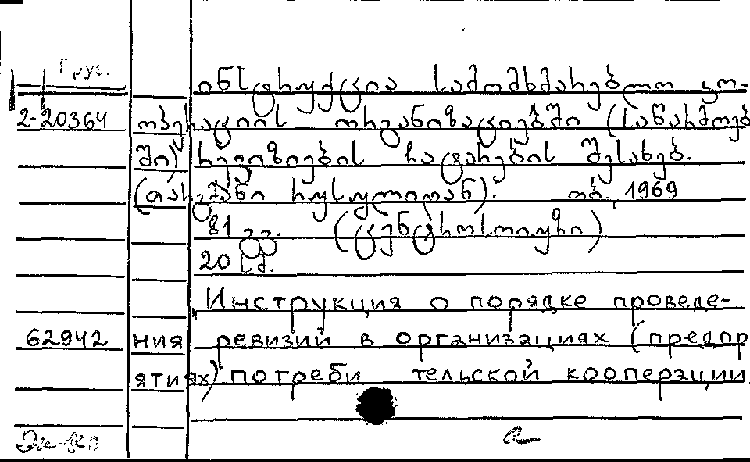 Груз.
ინსტრუქცია სამომხმარებლო კო-
2-20364 ოპერაციის ორგანიზაციებში (საწარმოებ
ში) რევიზიების ჩატარების შესახებ.
(თარგმანი რუსულიდან). თბ., 1969
81 გვ. (ცენტროსოიუზი)
20 კ.
Инструкция о порядке проведе-
62942 ния ревизий в организациях (предпр
иятиях) потребительской кооперации